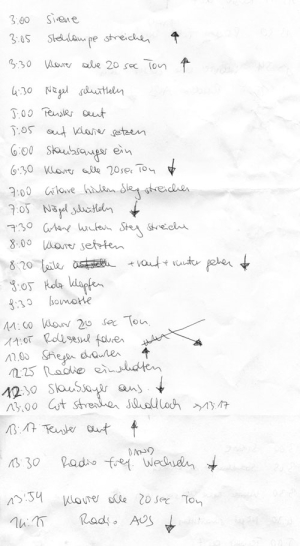 3:00 Sirene
3:05 Stehlampe streichen ↑
3:30 Klavier alle 20 sec Ton ↑
4:30 Nägel schütteln
5:00 Fenster auf
5:05 auf Klavier setzen
6:00 Staubsauger ein
6:30 Klavier alle 20 sec Ton ↓
7:00 Gitarre hinterm Steg streichen
7:05 Nägel schütteln ↓
7:30 Gitarre hinterm Steg streichen
8:00 Klavier setzten
8:20 Leiter + rauf + runter gehen ↓
9:05 Holz klopfen
9:30
11:00 Klavier 20 sec Ton
11:05 Rollsessel fahren
12:00 Stiegen ↑
12:25 Radio einschalten
12:30 Staubsauger aus ↓
13:00 Git streichen Schallloch → 13:17
13:17 Fenster auf ↑
BAND
13:30 Radio freq. Wechseln ↓
13:54 Klavier alle 20 sec Ton
14:15 Radio AUS ↓